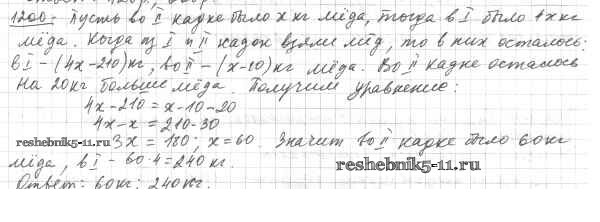 1200. Пусть во II кадке было x кг мёда, тогда в I было 4x кг
мёда. Когда из I и II кадок взяли мёд, то в них осталось:
в I - (4x-210) кг, во II - (x-10) кг мёда. Во II кадке осталось
На 20 кг больше мёда. Получим уравнение:
4x-210 = x-10-20
4x-x = 210-30
reshebnik5-11.ru 3x = 180; x=60. Значит во II кадке было 60 кг
мёда, в I - 60·4=240 кг.
reshebnik5-11.ru
Ответ: 60 кг; 240 кг.